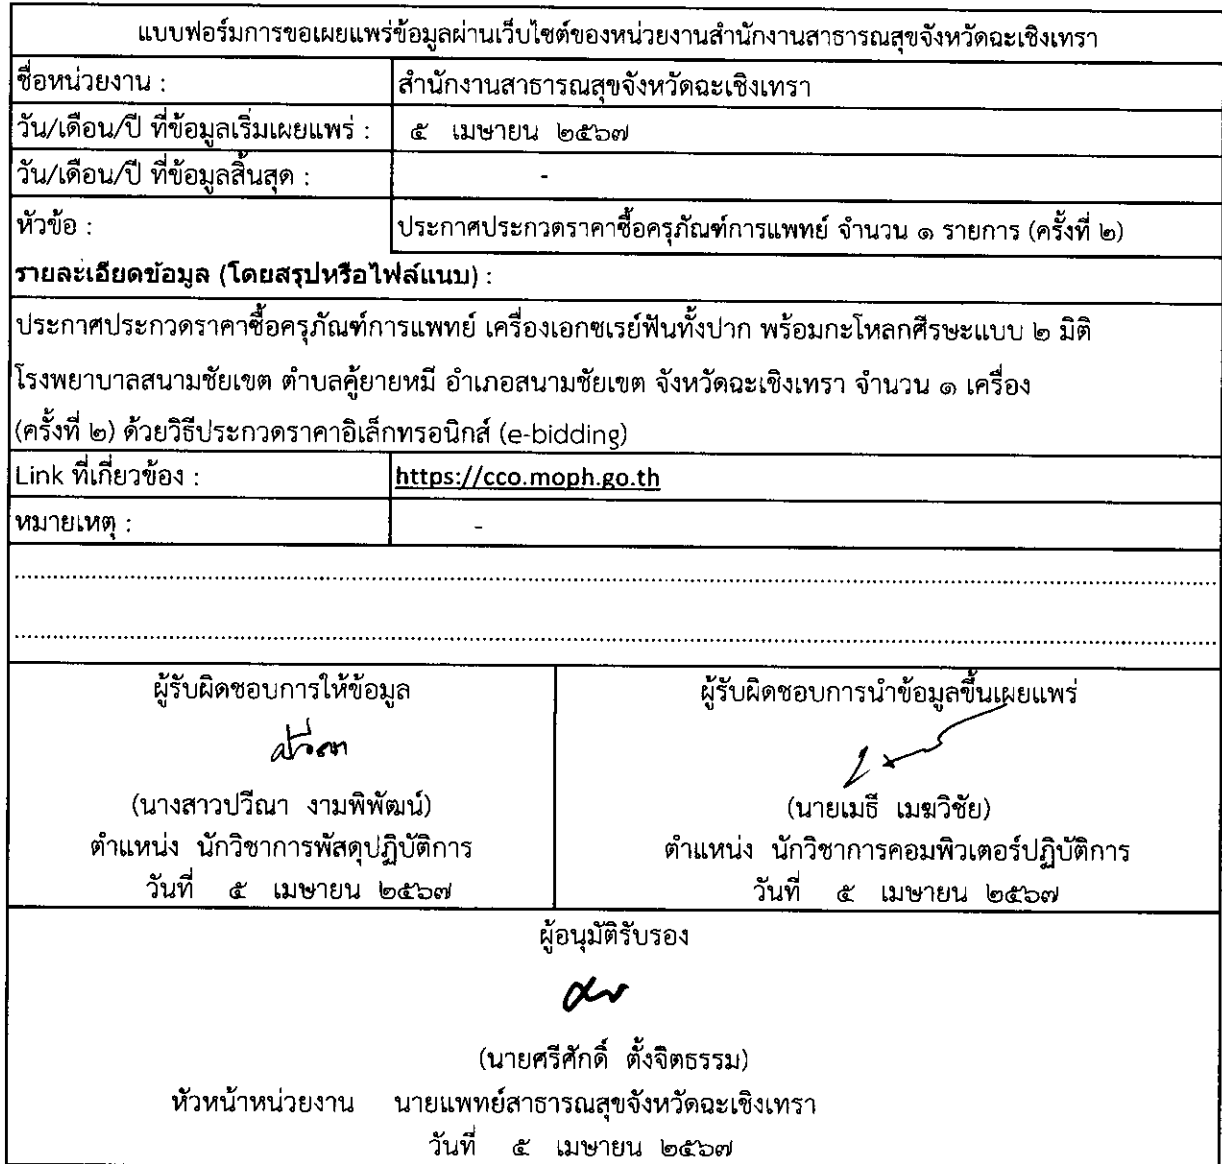 แบบฟอร์มการขอเผยแพร่ข้อมูลผ่านเว็บไซต์ของหน่วยงานสำนักงานสาธารณสุขจังหวัดฉะเชิงเทรา
ชื่อหน่วยงาน : สำนักงานสาธารณสุขจังหวัดฉะเชิงเทรา
วัน/เดือน/ปี ที่ข้อมูลเริ่มเผยแพร่ : ๕ เมษายน ๒๕๖๗
วัน/เดือน/ปี ที่ข้อมูลสิ้นสุด : -
หัวข้อ : ประกาศประกวดราคาซื้อครุภัณฑ์การแพทย์ จำนวน ๑ รายการ (ครั้งที่ ๒)
รายละเอียดข้อมูล (โดยสรุปหรือไฟล์แนบ) :
ประกาศประกวดราคาซื้อครุภัณฑ์การแพทย์ เครื่องเอกซเรย์ฟันทั้งปาก พร้อมกะโหลกศีรษะแบบ ๒ มิติ
โรงพยาบาลสนามชัยเขต ตำบลคู้ยายหมี อำเภอสนามชัยเขต จังหวัดฉะเชิงเทรา จำนวน ๑ เครื่อง
(ครั้งที่ ๒) ด้วยวิธีประกวดราคาอิเล็กทรอนิกส์ (e-bidding)
Link ที่เกี่ยวข้อง : https://cco.moph.go.th
หมายเหตุ : -
ผู้รับผิดชอบการให้ข้อมูล
ปวีณา
(นางสาวปวีณา งามพิพัฒน์)
ตำแหน่ง นักวิชาการพัสดุปฏิบัติการ
วันที่ ๕ เมษายน ๒๕๖๗
ผู้รับผิดชอบการนำข้อมูลขึ้นเผยแพร่
(นายเมธี เมฆวิชัย)
ตำแหน่ง นักวิชาการคอมพิวเตอร์ปฏิบัติการ
วันที่ ๕ เมษายน ๒๕๖๗
ผู้อนุมัติรับรอง
(นายศรีศักดิ์ ตั้งจิตธรรม)
หัวหน้าหน่วยงาน นายแพทย์สาธารณสุขจังหวัดฉะเชิงเทรา
วันที่ ๕ เมษายน ๒๕๖๗